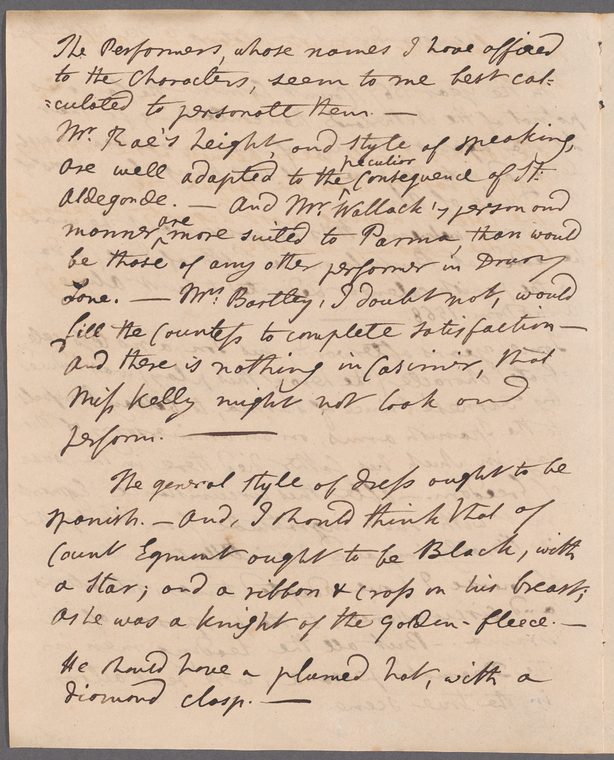 The Performers, whose names I have affixed
to the Characters, seem to me best cal=
=culated to personate them. —
Mr. Rae's height, and style of speaking,
are well adapted to the peculiar Consequence of St.
Aldegonde. — And Mr. Wallack's person and
manner are more suited to Parma, than would
be those of any other performer in Drury
Lane. — Mrs. Bartley, I doubt not, would
fill the Countess to complete satisfaction —
And there is nothing in Casimir, that
Miss Kelly might not look and
perform. —
The general style of dress ought to be
Spanish. — And, I should think that of
Count Egmont ought to be Black, with
a Star; and a ribbon & cross on his breast;
as he was a knight of the golden-fleece. —
He should have a plumed hat, with a
diamond clasp. —